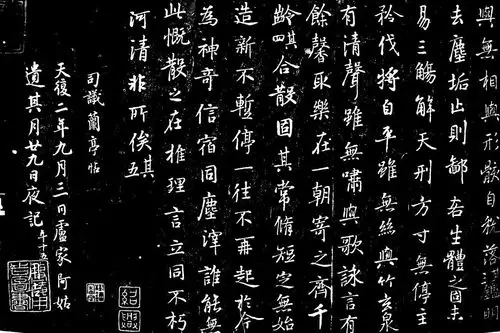 與無相與形骸自脫落鑒明
去塵垢止則鄙吝生體之固未
易三觴解天刑方寸無停主
矜伐將自平雖無絲與竹玄泉
有清聲雖無嘯與歌詠言有
餘馨取樂在一朝寄之齊千
齡其四合散固其常脩短定無始
造新不暫停一往不再起於今
為神奇信宿同塵滓誰能無
此慨散之在推理言立同不朽
河清非所俟其五
司議蘭亭帖
天後二年九月三日盧家阿姑
遺其月廿九日夜記年十五
紹興